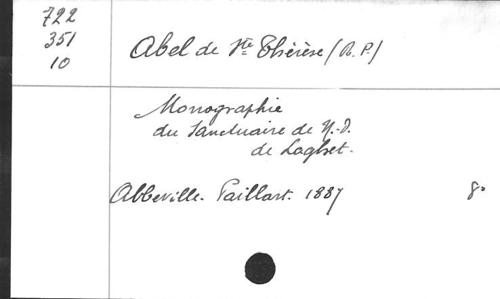 722
351
10
Abel de Ste Thérèse (R.P.)
Monographie
du Sanctuaire de N.-D.
de Laghet.
Abbeville. Paillart. 1887 8º